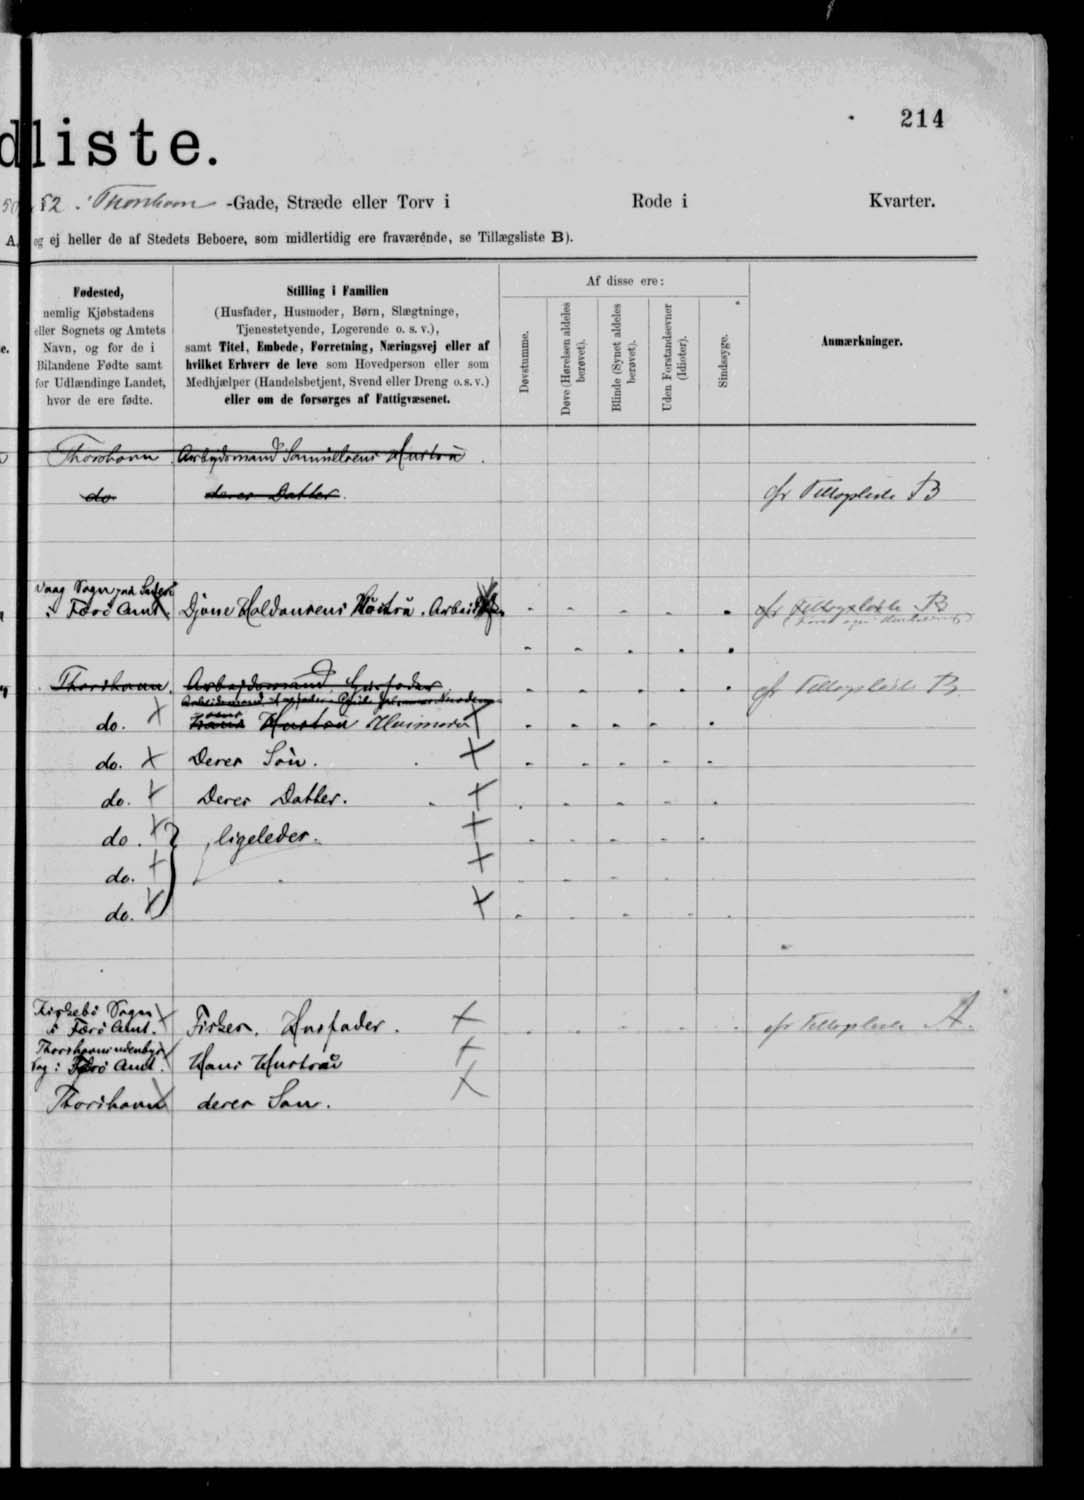 214
dliste.
50 52 i Thorshavn -Gade, Stræde eller Torv i Rode i Kvarter.
A. og ej heller de af Stedets Beboere, som midlertidig ere fraværénde, se Tillægsliste B).
Fødested,
nemlig Kjøbstadens
eller Sognets og Amtets
Navn, og for de i
Bilandene Fødte samt
for Udlændinge Landet,
hvor de ere fødte.
Stilling i Familien
(Husfader, Husmoder, Børn, Slægtninge,
Tjenestetyende, Logerende o. s. v.),
samt Titel, Embede, Forretning, Næringsvej eller af
hvilket Erhverv de leve som Hovedperson eller som
Medhjælper (Handelsbetjent, Svend eller Dreng o. s. v.)
eller om de forsørges af Fattigvæsenet.
Af disse ere:
Døvstumme.
Døve (Hørelsen aldeles
berøvet).
Blinde (Synet aldeles
berøvet).
Uden Forstandsevner
(Idioter).
Sindssyge.
Anmærkninger.
Thorshavn Arbejdsmand Samuelsens Hustru
do. deres Datter. cfr Tillægsliste B
Vaag Sogn paa
i Færø Amt. Djone Joldansens Hustru. cfr Tillægsliste B
Thorshavn. Arbejdsmand Husfader cfr Tillægsliste B.
do. Hans Hustru Husmoder
do. Deres Søn.
do. Deres Datter.
do. ligeledes.
do.
do.
Kirkebø Sogn
i Færø Amt. Fisker. Husfader. cfr Tillægsliste A.
Thorshavns udenbys
Sog i Færø Amt. Hans Hustru
Thorshavn deres Søn.